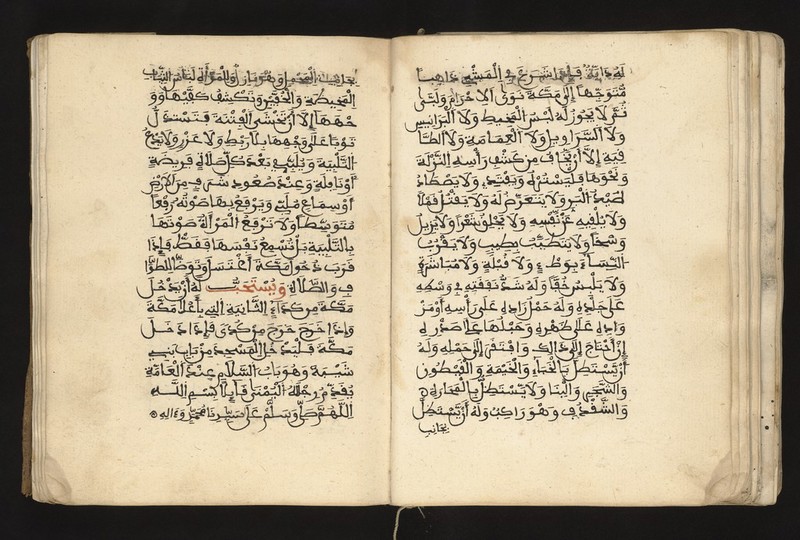 له دابة فإذا شرع في المشي ذاهبا
متوجها إلى مكة نوى الاحرام ولبى
ثم لا يجوز له لبس المخيط ولا البرانيس
ولا السراويل ولا العمامة ولا الطا
قية إلا أن يخاف من كشف رأسه النزلة
ونحوها فليستتره ويفتدي ولا يصطاد
صيد البر ولا يتعرض له ولا يقتل قملا
ولا يلقيه عن نفسه ولا يحلق شعرا ولا يزيل
وسخا ولا يتطيب بطيب ولا يقرب
النساء بوطء ولا قبلة ولا مباشرة
ولا يلبس خفا وله شد نفقته في وسطه
على جلده وله حمل زاده على رأسه او مز
واده على ظهره وحبلها على صدره
إن احتاج إلى ذالك وافتقر إلى حمله وله
أن يستظل بالخباء والخيمة والقيطون
والشجر والبنا ولا يستظل بالمحارة
والشقدف وهو راكب وله أن يستظل
بجانب
بجانب المحمل وهو نازل والمرأة لباس الثياب
المخيطة والخفين وتكشف كفيها وو
جهها إلا أن تخشى الفتنة فتستدل
ثوبا على وجهها بلا ربط ولا غرز ولا يدع
التلبية ويلبي بعد كل صلاة فريضة
أو نافلة وعند صعود شرف من الارض
أو سماع ملبي ويرفع بها صوته رفعا
متوسطا ولا ترفع المرأة صوتها
بالتلبية بل تسمع نفسها فقط فإذا
قرب دخول مكة اغتسل وتوضأ للطوا
ف والصلاة ويستحب له أن يدخل
مكة من كداء الثانية التي بأعلا مكة
وإذا خرج خرج من كدى فإذا دخل
مكة فليدخل المسجد من باب بني
شيبة وهو باب السلام عند العامة
يقدم رجله اليمنى قايلا بسم الله
اللهم صل وسلم على سيدنا محمد وءاله